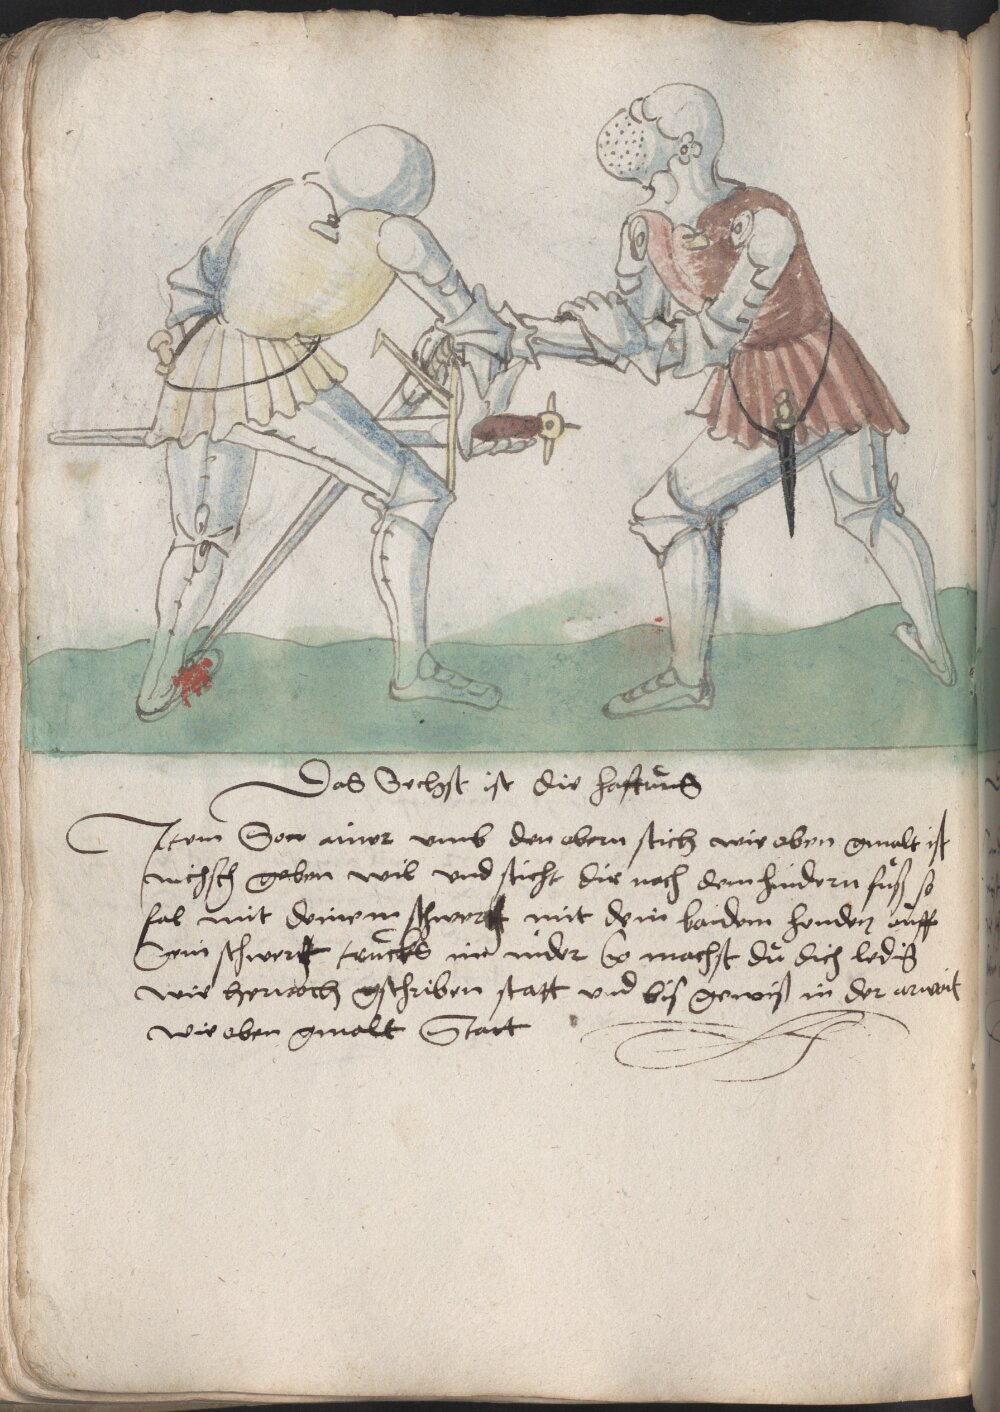 Das Sechst ist die haftung
Item Son ainer umb den obern stich wie oben gmalt ist
nichsch geben wil und sticht dir nach dem hindern fuß so
fal mit deinem schwertt mit dein baidem henden auff
sein schwertt trucks im nider so machst dü dich ledig
wie hernoch gschriben statt und bis gewiß in der arwait
wie oben gmalt Statt